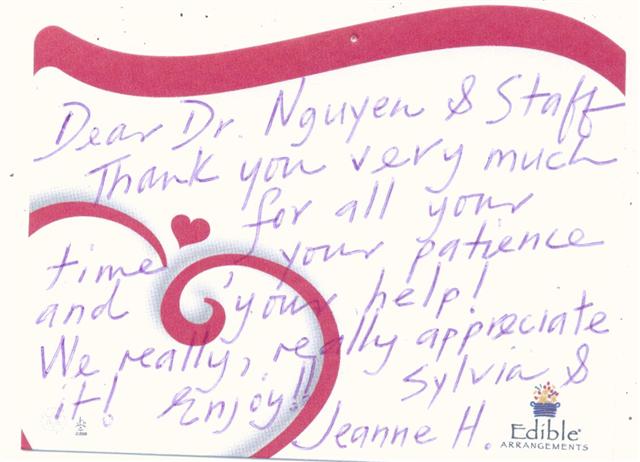 Dear Dr. Nguyen & Staff
Thank you very much
for all your
time, your patience
and your help!
We really, really appreciate
it! Enjoy!! Sylvia &
Jeanne H.
Edible®
ARRANGEMENTS